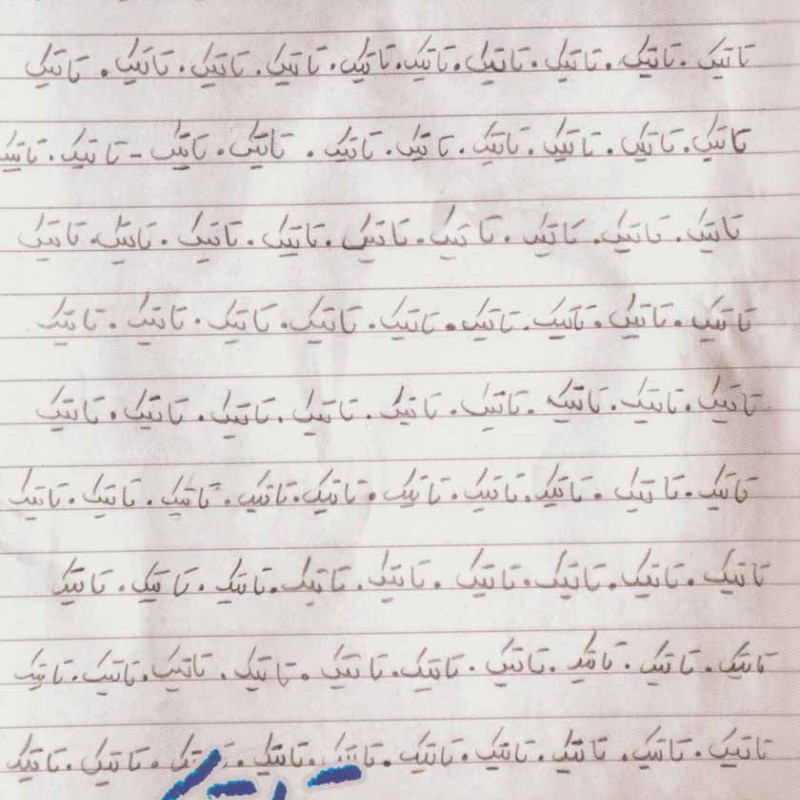 تاتیک . تاتیک . تاتیک . تاتیک . تاتیک . تاتیک . تاتیک . تاتیک . تاتیک . تاتیک
تاتیک . تاتیک . تاتیک . تاتیک . تاتیک . تاتیک . تاتیک . تاتیک - تاتیک . تاتیک
تاتیک . تاتیک . تاتیک . تاتیک . تاتیک . تاتیک . تاتیک . تاتیک . تاتیک
تاتیک . تاتیک . تاتیک . تاتیک . تاتیک . تاتیک . تاتیک . تاتیک . تاتیک
تاتیک . تاتیک . تاتیک . تاتیک . تاتیک . تاتیک . تاتیک . تاتیک . تاتیک
تاتیک . تاتیک . تاتیک . تاتیک . تاتیک . تاتیک . تاتیک . تاتیک . تاتیک . تاتیک
تاتیک . تاتیک . تاتیک . تاتیک . تاتیک . تاتیک . تاتیک . تاتیک . تاتیک
تاتیک . تاتیک . تاتیک . تاتیک . تاتیک . تاتیک . تاتیک . تاتیک . تاتیک . تاتیک
تاتیک . تاتیک . تاتیک . تاتیک . تاتیک . تاتیک . تاتیک . تاتیک . تاتیک